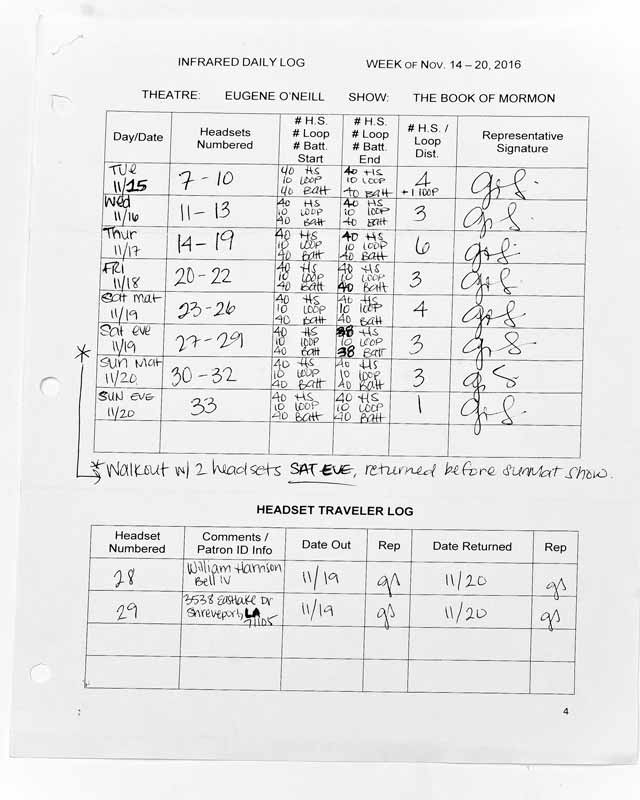 INFRARED DAILY LOG WEEK OF NOV. 14 – 20, 2016
THEATRE: EUGENE O'NEILL SHOW: THE BOOK OF MORMON
Day/Date
Headsets
Numbered
# H.S.
# Loop
# Batt.
Start
# H.S.
# Loop
# Batt.
End
# H.S. /
Loop
Dist.
Representative
Signature
TUE
11/15
7 - 10
40 HS
10 LOOP
40 Batt
40 HS
10 LOOP
40 Batt
4
+1 loop
Wed
11/16
11 - 13
40 HS
10 LOOP
40 Batt
40 HS
10 LOOP
40 Batt
3
Thur
11/17
14 - 19
40 HS
10 LOOP
40 Batt
40 HS
10 LOOP
40 Batt
6
FRI
11/18
20 - 22
40 HS
10 LOOP
40 Batt
40 HS
10 LOOP
40 Batt
3
Sat mat
11/19
23 - 26
40 HS
10 LOOP
40 Batt
40 HS
10 LOOP
40 Batt
4
Sat eve
11/19
27 - 29
40 HS
10 LOOP
40 Batt
38 HS
10 LOOP
38 Batt
3
* SUN Mat
11/20
30 - 32
40 HS
10 LOOP
40 Batt
40 HS
10 LOOP
40 Batt
3
SUN EVE
11/20
33
40 HS
10 LOOP
40 Batt
40 HS
10 LOOP
40 Batt
1
* Walkout w/ 2 headsets SAT EVE, returned before sunMat show.
HEADSET TRAVELER LOG
Headset
Numbered
Comments /
Patron ID Info
Date Out
Rep
Date Returned
Rep
28
William Harrison
Bell IV
11/19
gs
11/20
gs
29
3538 Eastlake Dr
Shreveport, LA
71105
11/19
gs
11/20
gs
4